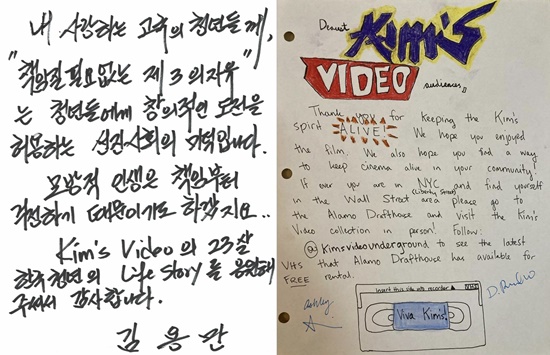 내 사랑하는 고국의 청년들께,
"책임질 필요없는 제3의 자유"
는 청년들에게 창의적인 도전을
허용하는 선진사회의 기덕입니다.
모방적 인생은 책임부터
걱정하기 때문이기도 하겠지요..
Kim's Video의 23살
한국청년의 Life Story를 응원해
주셔서 감사합니다.
김용만
Dearest
Kim's
VIDEO
audiences,
Thank YOU for keeping the Kim's
spirit ALIVE! We hope you enjoyed
the film. We also hope you find a way
to keep cinema alive in your community!
If ever you are in NYC and find yourself
(Liberty Street)
in the Wall Street area please go to
the Alamo Drafthouse and visit the Kim's
Video collection in person! Follow:
@Kimsvideounderground to see the latest
VHS that Alamo Drafthouse has available for
FREE rental.
insert this side into recorder
Viva Kim's!
ashley